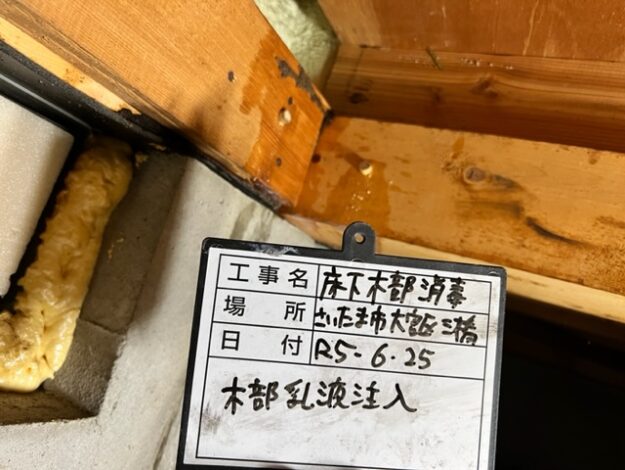 工事名 床下木部消毒
場所 さいたま市大宮区三橋
日付 R5-6・25
木部乳液注入